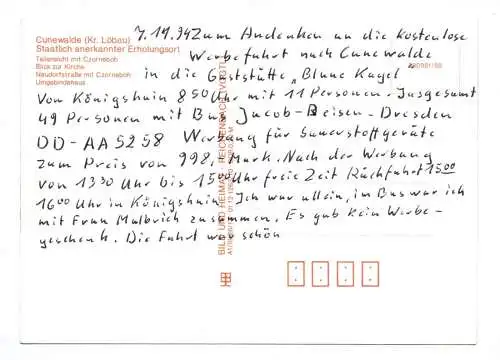 Cunewalde (Kr. Löbau)
Staatlich anerkannter Erholungsort
Teilansicht mit Czorneboh
Blick zur Kirche
Neudorfstraße mit Czorneboh
Umgebindehaus
7.11.94 Zum Andenken an die kostenlose
Werbefahrt nach Cunewalde
in die Gaststätte „Blaue Kugel
Von Königshain 850 Uhr mit 11 Personen. Insgesamt
49 Personen mit Bus Jacob-Reisen-Dresden
DD-AA 5258 Werbung für Sauerstoffgeräte
zum Preis von 998,- Mark. Nach der Werbung
von 1330 Uhr bis 1500 Uhr freie Zeit Rückfahrt 1500
1600 Uhr in Königshain. Ich war allein, im Bus war ich
mit Frau zusammen. Es gab kein Werbe-
geschenk. Die Fahrt war schön
BILD UND HEIMAT REICHENBACH (VOGTL)